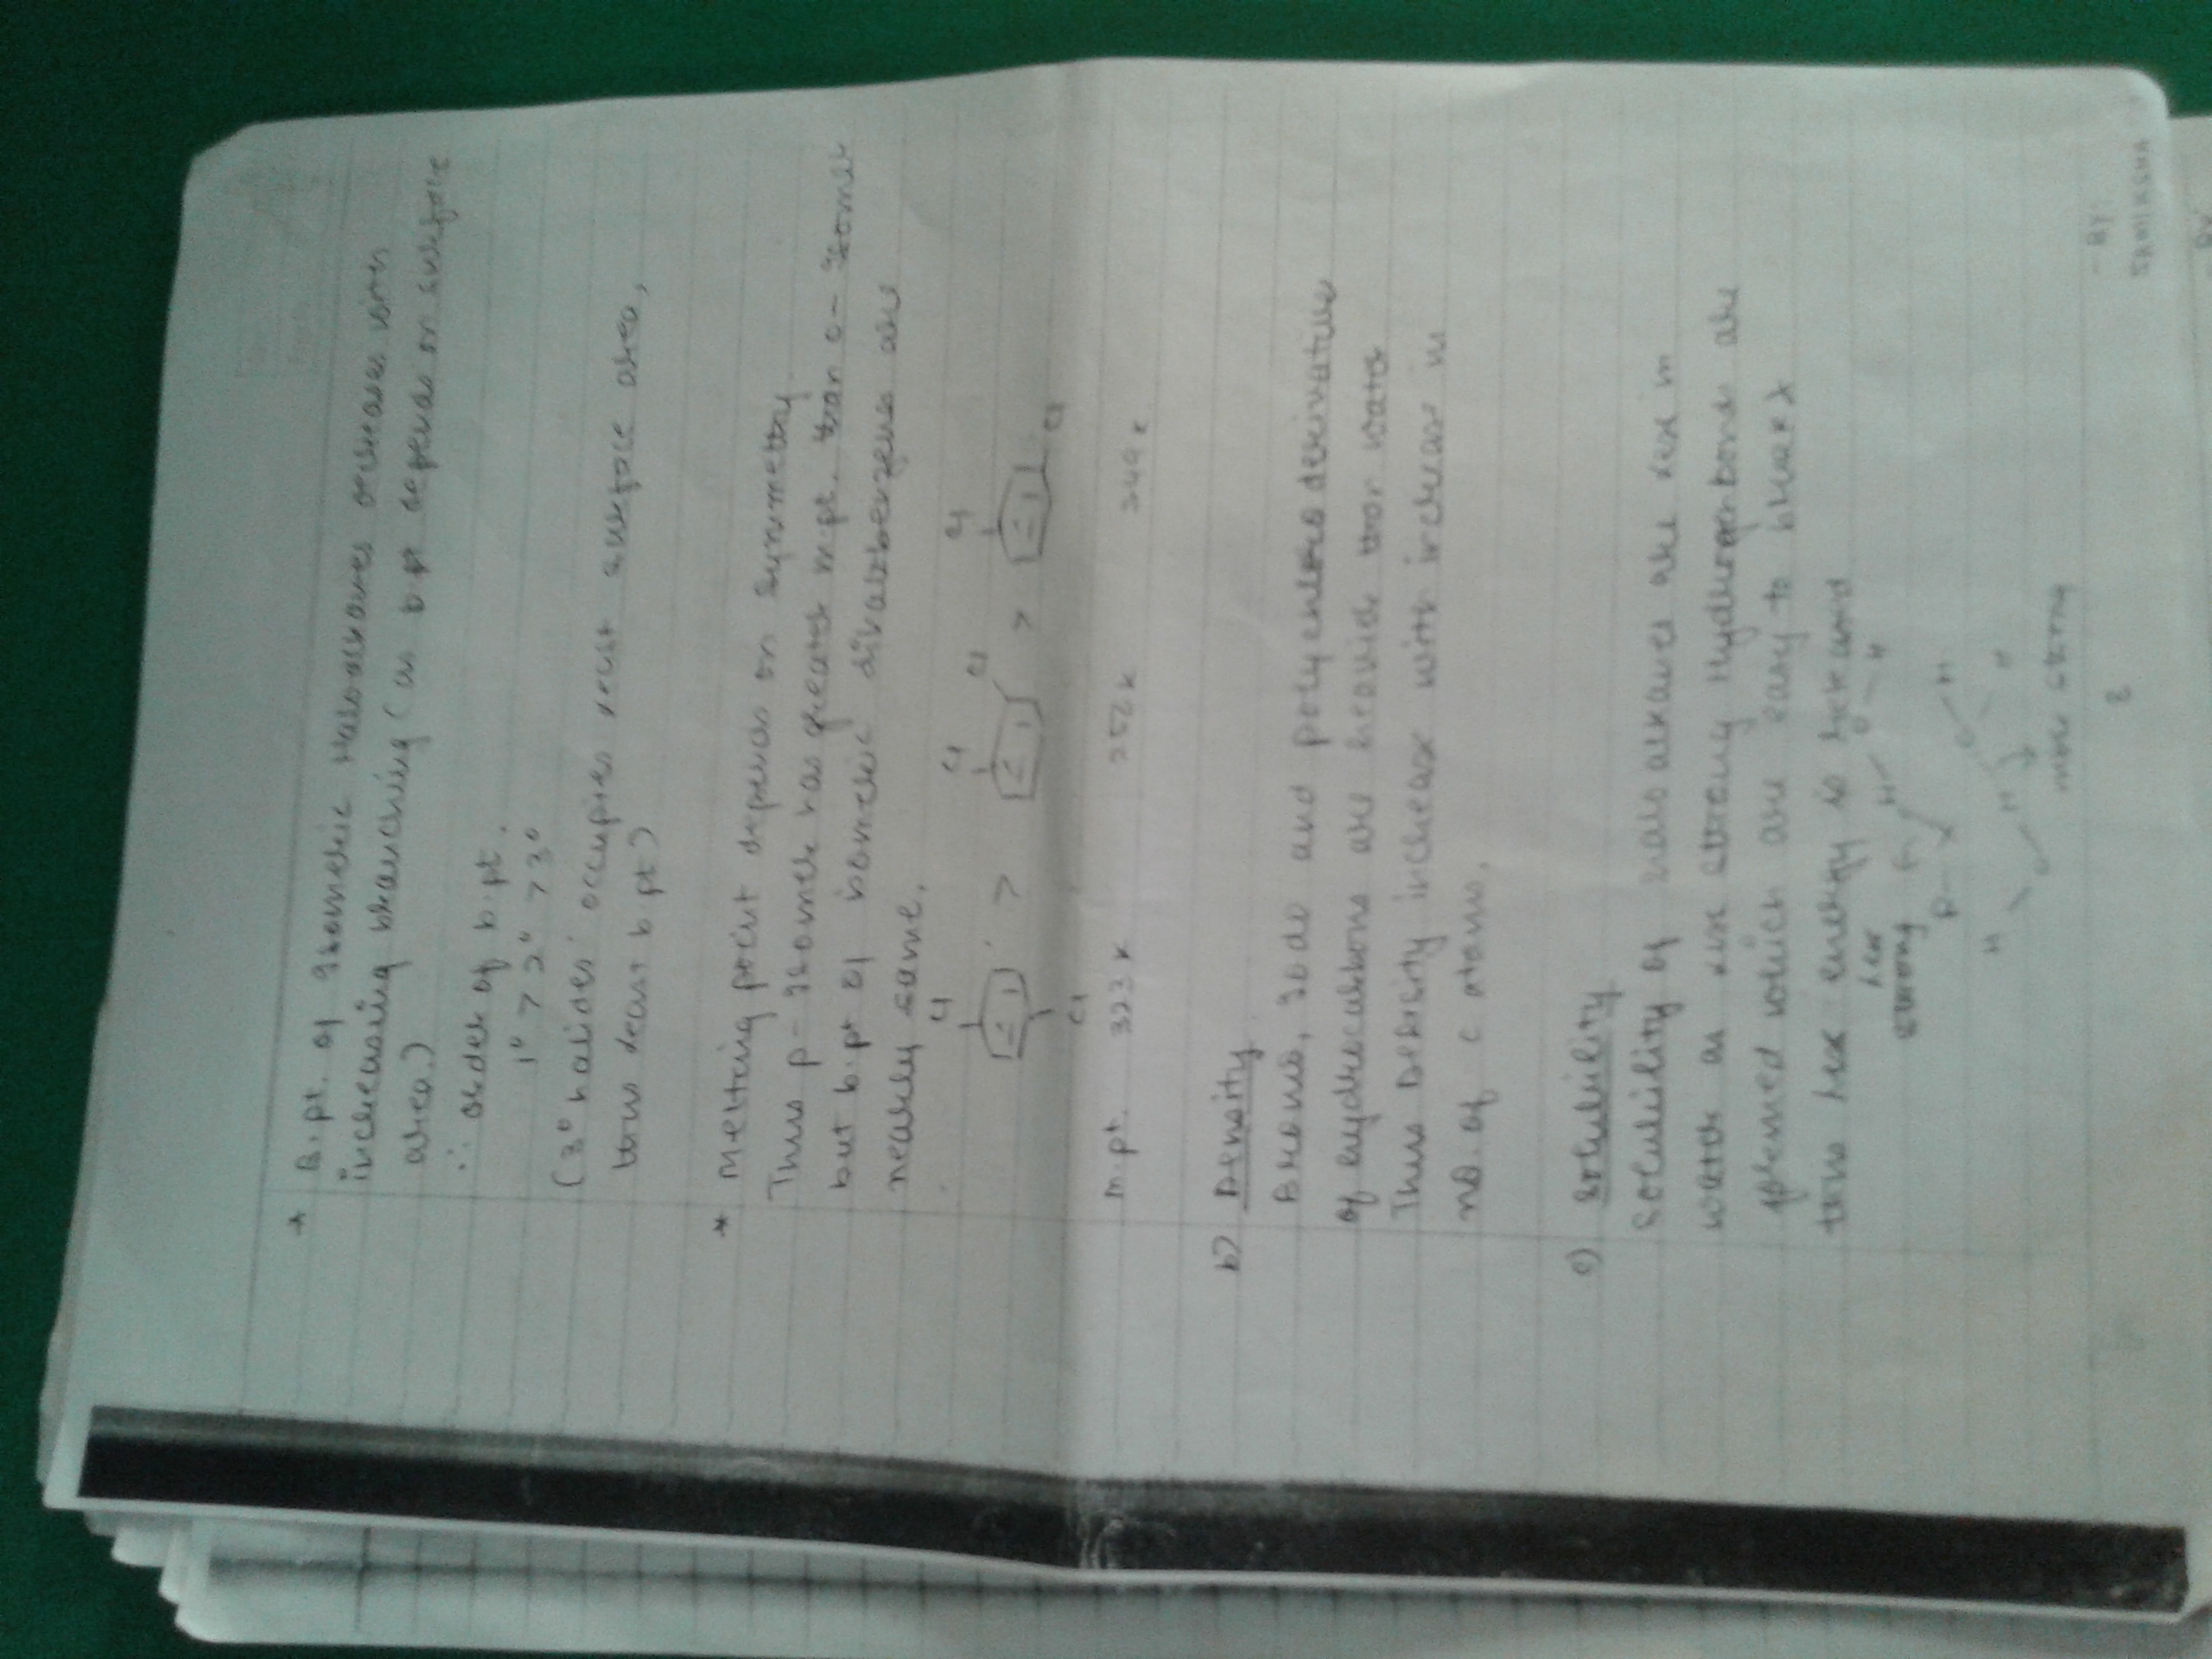 * B.pt. of Isomeric Haloalkanes decreases with
increasing branching (as b.pt depends on surface
area.)
∴ order of b.pt.
1° > 2° > 3°
(3° halides occupies least surface area,
thus least b.pt)
* Melting point depends on symmetry
Thus p-isomer has greater m.pt. than o- isomer
but b.pt of isomeric dihalobenzenes are
nearly same.
Cl Cl Cl Cl
> >
Cl Cl
m.pt. 323 K 252 K 249 K
b) Density
Bromo, Iodo and polychloro derivative
of hydrocarbons are heavier than water
Thus Density increase with increase in
no. of c atoms.
c) Solubility
Solubility of halo alkanes are less in
water as less strong Hydrogen bond are
formed which are easy to break &
thus less energy is released
less
strong
R - X H - O - H
H O H O H H
more strong
2
- By:
SAMIKSHA